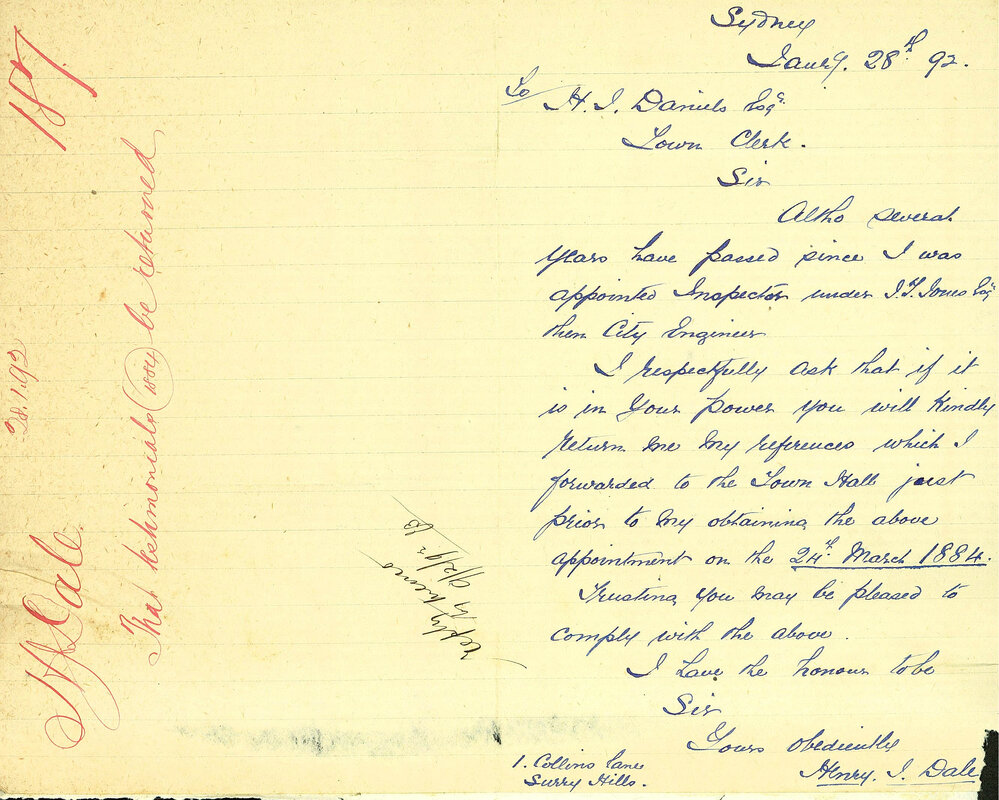 Sydney
Jany. 28th 92.
To H. J. Daniels Esqr.
Town Clerk.
Sir
Altho several
years have passed since I was
appointed Inspector under J. T. Jones Esqr
then City Engineer
I respectfully ask that if it
is in Your power you will Kindly
return me my references which I
forwarded to the Town Hall just
prior to my obtaining the above
appointment on the 24th March 1884.
Trusting you may be pleased to
comply with the above.
I have the honour to be
Sir
Yours obediently
Henry. J. Dale
1. Collins lane
Surry Hills.
187
28.1.92
HJ Dale.
That testimonials be returned
reply
9/2/92